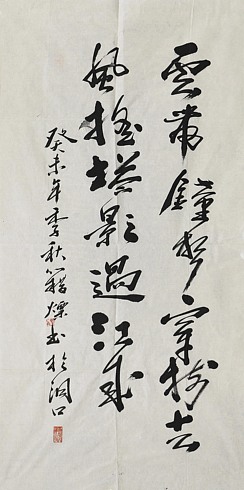 雲帶鐘聲穿樹去
風搖塔影過江來
癸未年季秋籍燦书於洞口